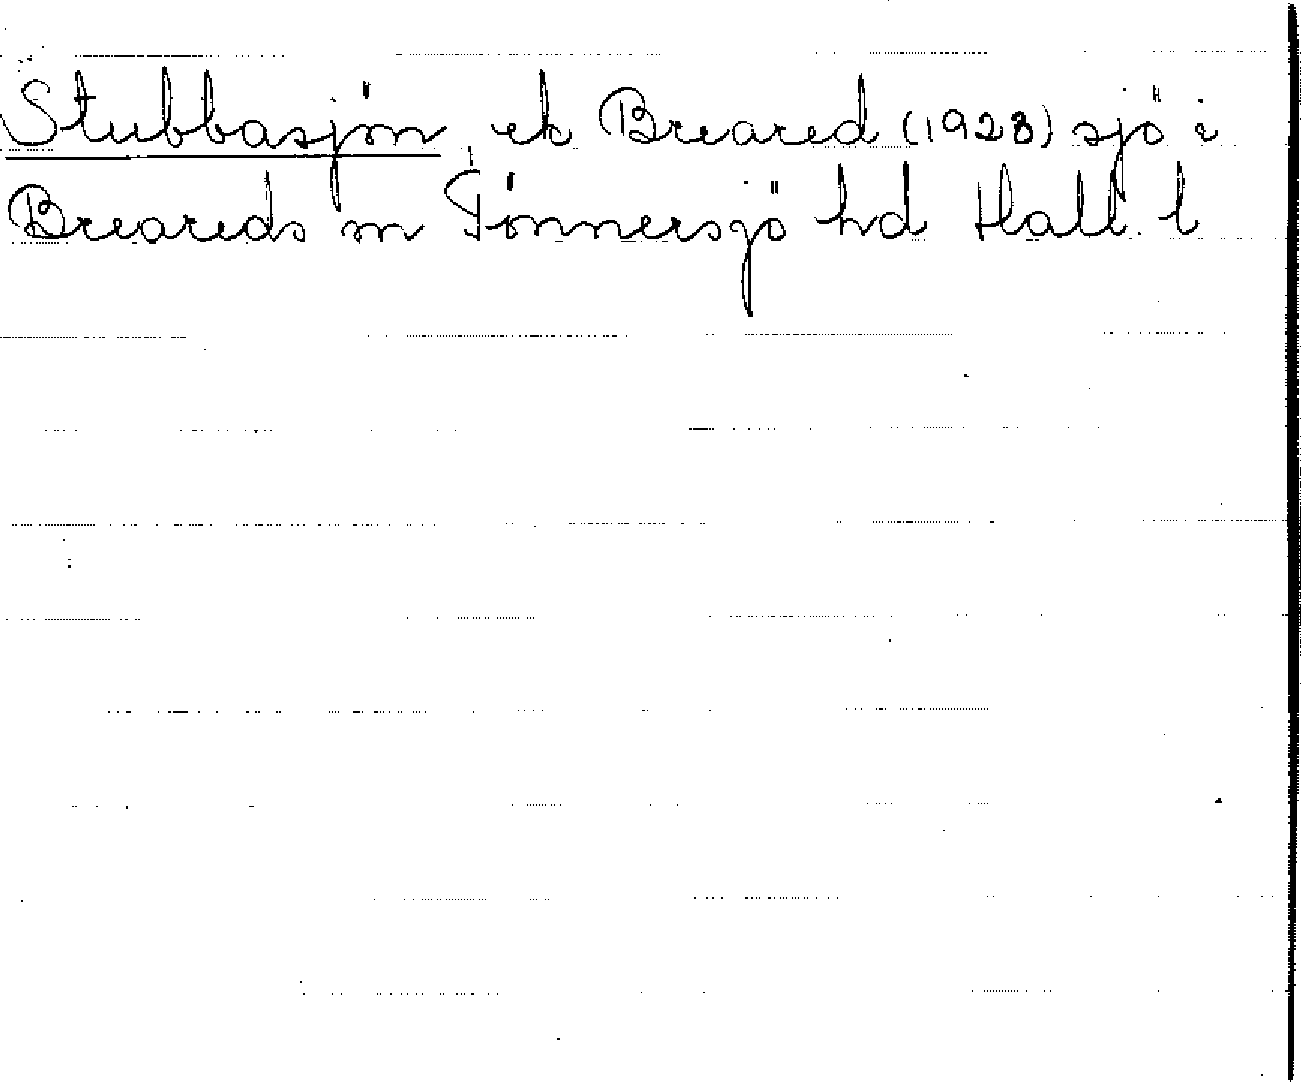 Stubbasjön, ek Breared (1928) sjö i
Breareds sn Tönnersjö hd Hall. l